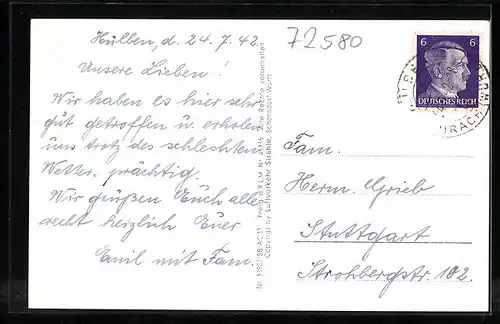 Hülben, d. 24.7.42.
72580
Unsere Lieben!
Wir haben es hier sehr
gut getroffen u. erholen
uns trotz des schlechten
Wetter. prächtig.
Wir grüßen Euch alle
recht herzlich Euer
Emil mit Fam.
Alle Rechte vorbehalten
Copyright by Luftverkehr Strähle, Schorndorf Württ.
6 6
DEUTSCHES REICH
URACH
Fam.
Herm. Grieb
Stuttgart
Strohbergstr. 102.